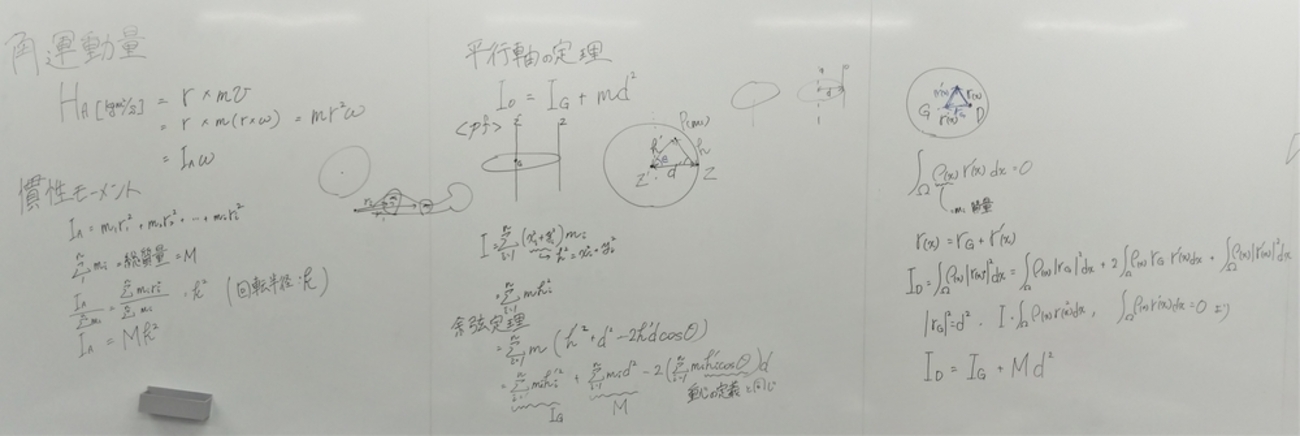 角運動量
H_A [kgm²/s] = r × mv
= r × m(r×ω) = mr²ω
= I_A ω
慣性モーメント
I_A = m₁r₁² + m₂r₂² + … + mᵢrᵢ²
Σmᵢ = 総質量 = M
I_A/Σmᵢ = Σmᵢrᵢ²/Σmᵢ = k² (回転半径:k)
I_A = Mk²
平行軸の定理
I_O = I_G + md²
<pf>
Z' Z
G
P(mᵢ)
h' h
θ
d
Z' Z
I = Σ(xᵢ²+yᵢ²)mᵢ
h² = xᵢ² + yᵢ²
= Σmᵢhᵢ²
余弦定理
= Σm(h'² + d² - 2h'dcosθ)
= Σmᵢhᵢ'² + Σmᵢd² - 2(Σmᵢhᵢ'cosθ)d
I_G M 重心の定義と同じ
r'(x) r(x)
G r_G D
∫_Ω ρ(x) r'(x) dx = 0
r(x) = r_G + r'(x)
I_D = ∫_Ω ρ(x)|r(x)|²dx = ∫_Ω ρ(x)|r_G|²dx + 2∫_Ω ρ(x) r_G r'(x)dx + ∫_Ω ρ(x)|r'(x)|²dx
|r_G|² = d², I = ∫_Ω ρ(x)r(x)²dx, ∫_Ω ρ(x)r'(x)dx = 0 より
I_D = I_G + Md²